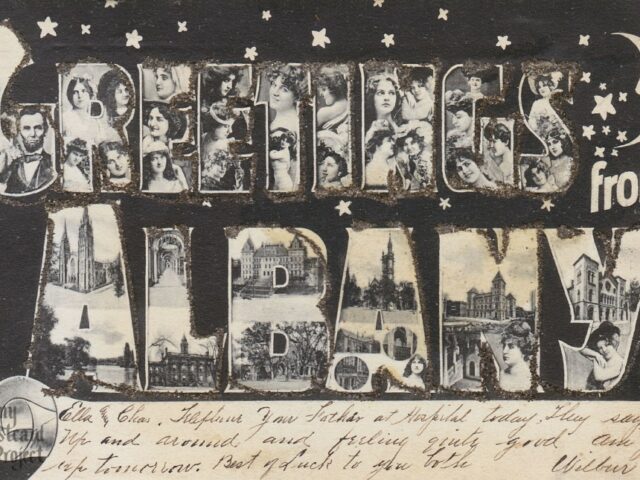 GREETINGS
from
ALBANY
Ella & Chas. Your Father at Hospital today. They say
up and around and feeling quite good any
up tomorrow. Best of Luck to you both
Wilbur
my
Postcard
Project